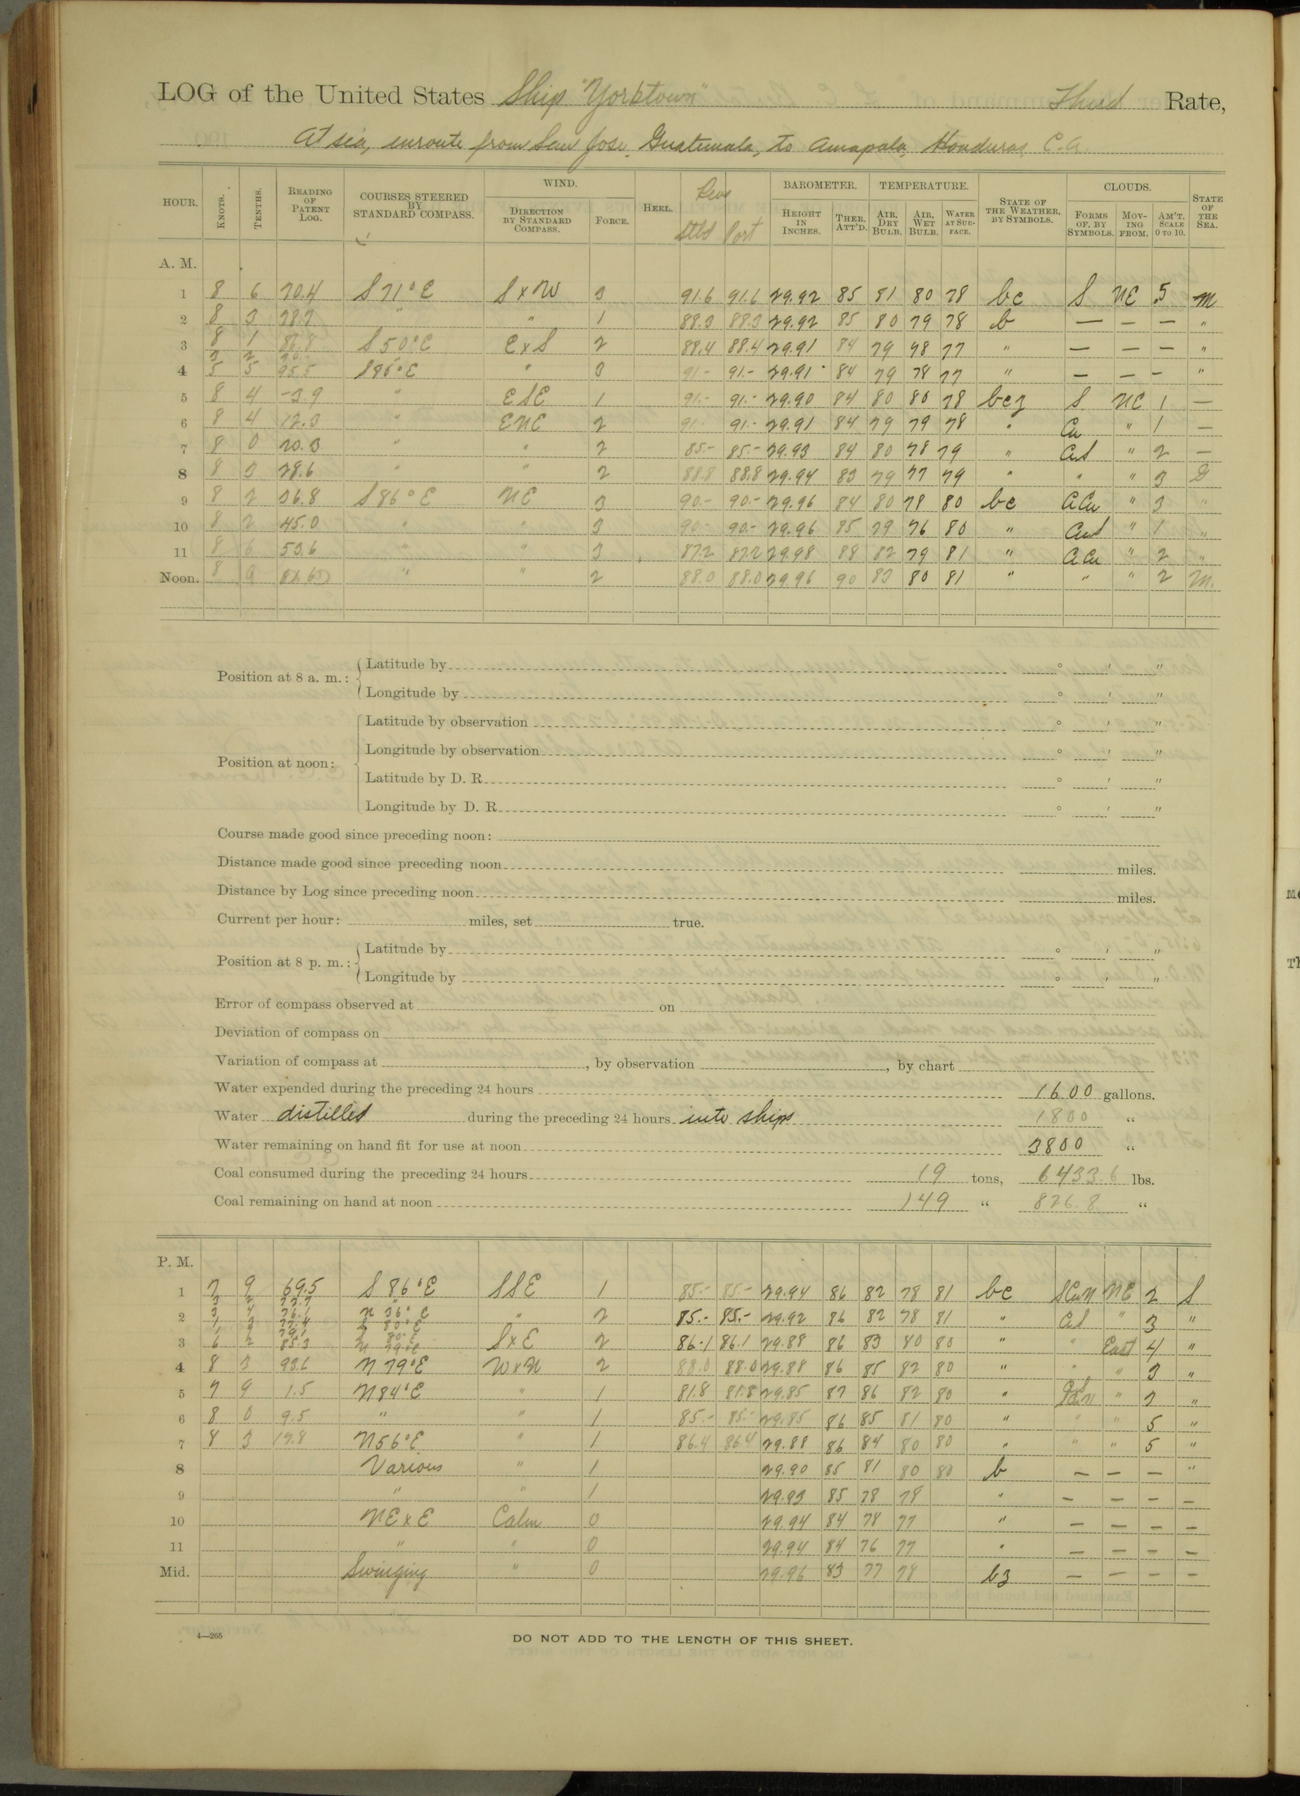 LOG of the United States Ship "Yorktown" Third Rate,
At sea, enroute from San Jose, Guatemala, to Amapala, Honduras C.A.
HOUR. KNOTS. TENTHS. READING OF PATENT LOG. COURSES STEERED BY STANDARD COMPASS. WIND. DIRECTION BY STANDARD COMPASS. FORCE. HEEL. Revs Stbd Port BAROMETER. HEIGHT IN INCHES. THER. ATT'D. TEMPERATURE. AIR, DRY BULB. AIR, WET BULB. WATER AT SURFACE. STATE OF THE WEATHER, BY SYMBOLS. CLOUDS. FORMS OF, BY SYMBOLS. MOVING FROM. AM'T. SCALE 0 TO 10. STATE OF THE SEA.
A. M.
1 8 6 70.4 S 71° E S x W 3 91.6 91.6 29.92 85 81 80 78 bc S NE 5 m
2 8 3 78.7 " " 1 88.3 88.3 29.92 85 80 79 78 b — — — "
3 8 1 86.8 S 50° E E x S 2 88.4 88.4 29.91 84 79 98 77 " — — — "
4 5 5 95.5 S 86° E " 3 91- 91- 29.91 84 79 78 77 " — — — "
5 8 4 3.9 " ESE 1 91.- 91.- 29.90 84 80 80 78 bcz S NE 1 —
6 8 4 12.3 " ENE 2 91- 91.- 29.91 84 79 79 78 " Cu " 1 —
7 8 0 20.3 " " 2 85- 85.- 29.93 84 80 78 79 " " 2 —
8 8 3 28.6 " " 2 88.8 88.8 29.94 83 79 77 79 " " " 3 S
9 8 2 36.8 S 86° E NE 3 90- 90- 29.96 84 80 78 80 bc A Cu " 3 "
10 8 2 45.0 " " 3 90- 90- 29.96 85 79 76 80 " " 1 "
11 8 6 53.6 " " 3 87.2 87.2 29.98 88 82 79 81 " A Cu " 2 "
Noon. 8 9 " " 2 88.0 88.0 29.96 90 83 80 81 " " " 2 m.
Position at 8 a. m.: Latitude by ° ' "
Longitude by ° ' "
Position at noon: Latitude by observation ° ' "
Longitude by observation ° ' "
Latitude by D. R. ° ' "
Longitude by D. R. ° ' "
Course made good since preceding noon:
Distance made good since preceding noon miles.
Distance by Log since preceding noon miles.
Current per hour: miles, set true.
Position at 8 p. m.: Latitude by ° ' "
Longitude by ° ' "
Error of compass observed at on
Deviation of compass on
Variation of compass at , by observation , by chart
Water expended during the preceding 24 hours 1600 gallons.
Water distilled during the preceding 24 hours into ships 1800 "
Water remaining on hand fit for use at noon 3800 "
Coal consumed during the preceding 24 hours 19 tons, 6433.6 lbs.
Coal remaining on hand at noon 149 " 826.8 "
P. M.
1 7 9 69.5 S 86° E SSE 1 85.- 85.- 29.94 86 82 78 81 bc NE 2 S
2 N 36° E " 2 85.- 85.- 29.92 86 82 78 81 " " 3 "
3 6 2 85.3 S x E 2 86.1 86.1 29.88 86 83 80 80 " " East 4 "
4 8 3 93.6 N 79° E W x N 2 88.0 88.0 29.88 86 85 82 80 " " " 3 "
5 7 9 1.5 N 84° E " 1 81.8 81.8 29.85 87 86 82 80 " " 2 "
6 8 0 9.5 " " 1 85.- 85.- 29.85 86 85 81 80 " " " 5 "
7 8 3 17.8 N 56° E " 1 86.4 86.4 29.88 86 84 80 80 " " " 5 "
8 Various " 1 29.90 85 81 80 80 b — — — "
9 " " 1 29.93 85 78 78 " — — — —
10 NE x E Calm 0 29.94 84 78 77 " — — — —
11 " " 0 29.94 84 76 77 " — — — —
Mid. Swinging " 0 29.96 83 77 78 bz — — — —
4—265
DO NOT ADD TO THE LENGTH OF THIS SHEET.